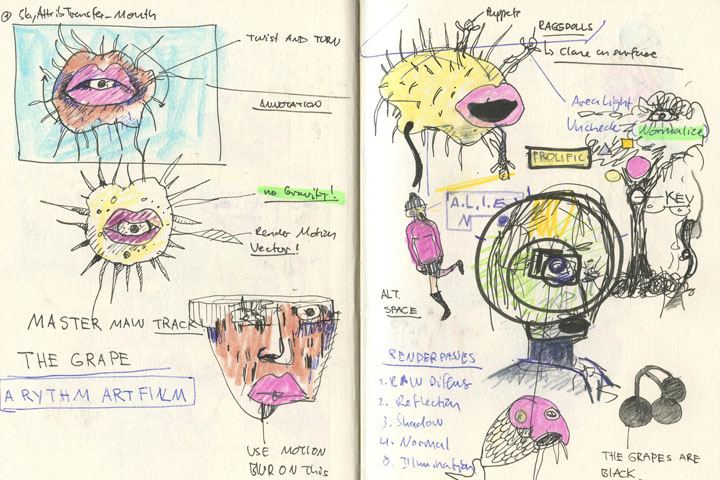 @ Ch_AttribTransfer_Mouth
TWIST AND TURN
ANNOTATION
no Gravity!
Render Motion
Vector!
MASTER MAIN TRACK
THE GRAPE
A RYTHM ART FILM
USE MOTION
BLUR ON THIS
Puppets
RAGDOLLS
↳ Clone on surface
Area Light
Uncheck
Normalize
PROLIFIC
A.L.I.E
N
KEY
ALT.
SPACE
RENDERPASSES
1. RAW Difuus
2. Reflection
3. Shadow
4. Normal
5. Illumination
THE GRAPES ARE
BLACK.